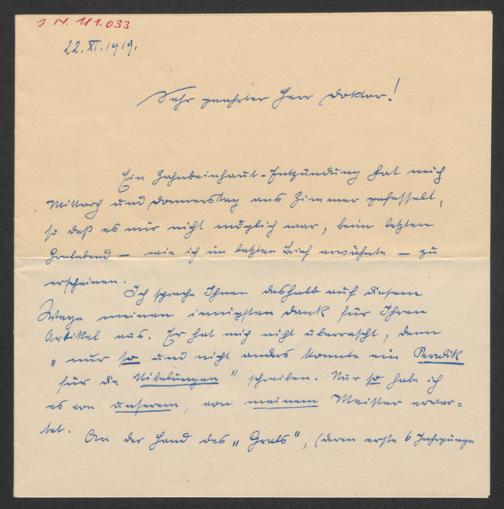 J.N. 181.033
22. XI. 1919.
Sehr geehrter Herr Doktor!
Ein Zahnbeinhaut-Entzündung hat mich
Mittwoch und Donnerstag ans Zimmer gefesselt,
so daß es mir nicht möglich war, beim letzten
Gralabend – wie ich im letzten Brief erwähnte – zu
erscheinen.
Ich spreche Ihnen deshalb auf diesem
Wege meinen innigsten Dank für Ihren
Artikel aus. Er hat mich nicht überrascht, denn
„nur so und nicht anders konnte ein
für die Nibelungen" schreiben. Nur so habe ich
es von unserem, von meinem Meister erwar-
tet. An der Hand des „Grals", (deren erste 6 Jahrgänge